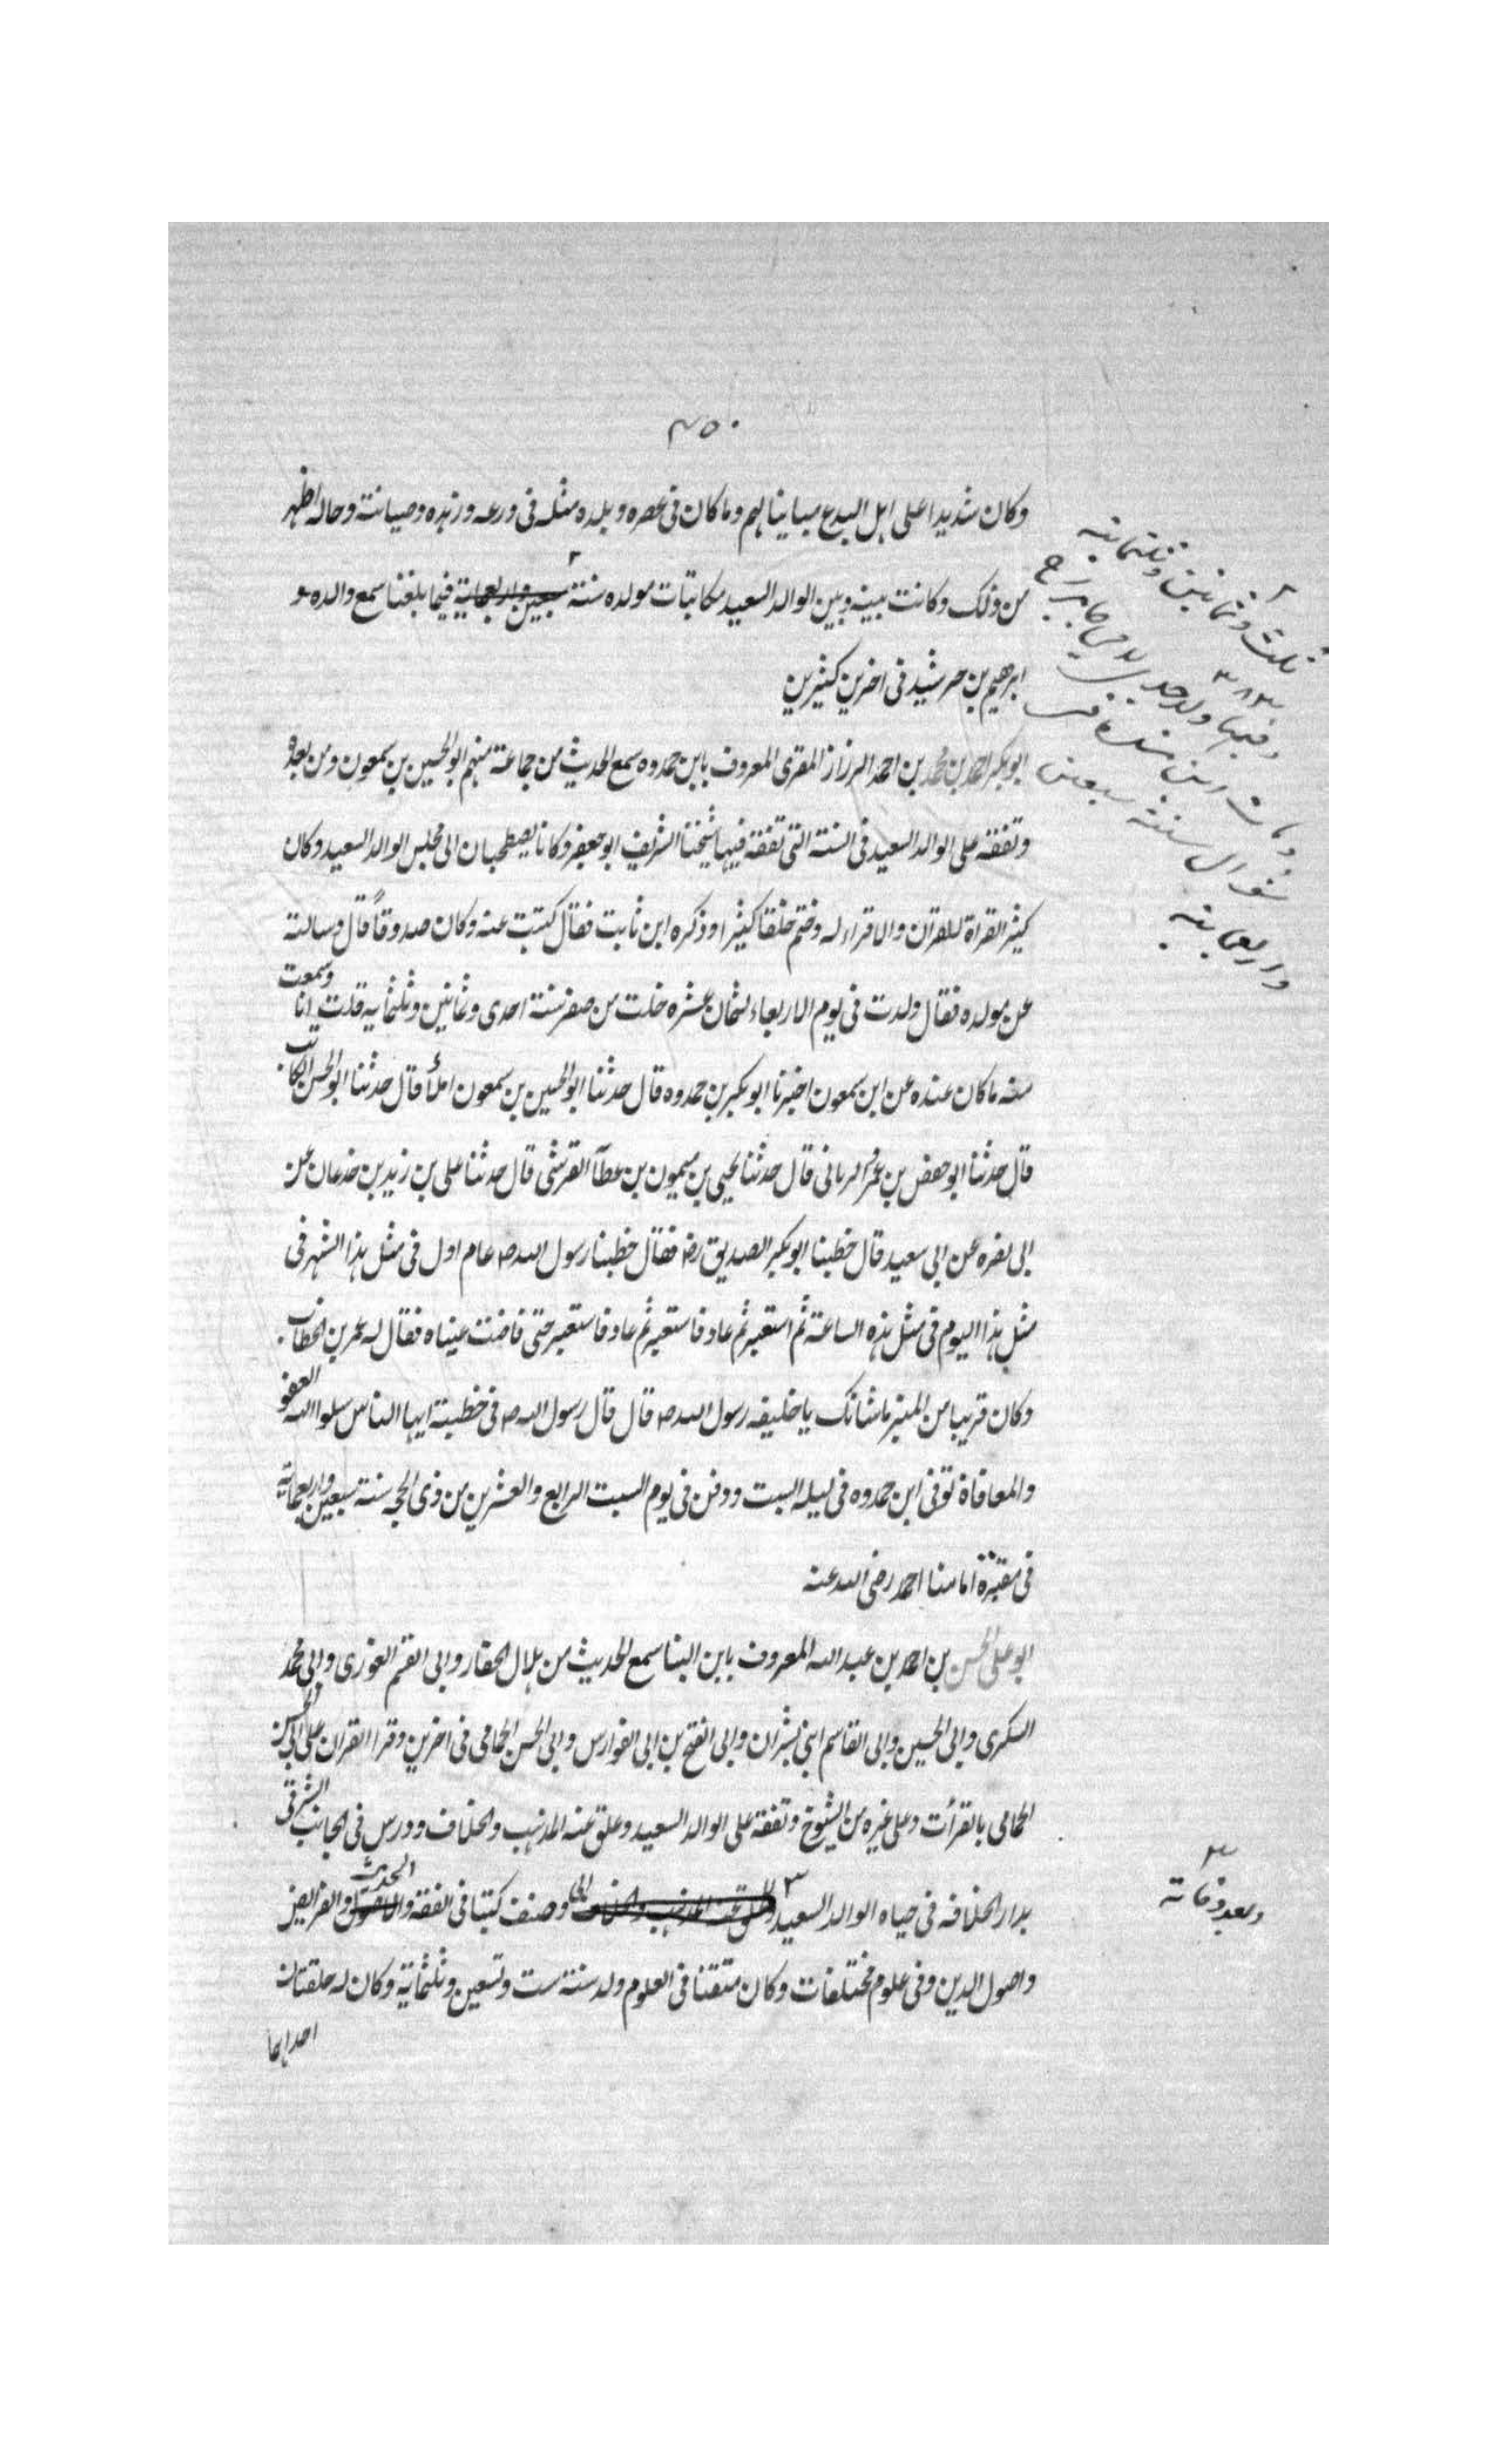 ٤٥٠
وكان شديدا على اهل البدع مباينا لهم وما كان فى عصره وبلده مثله فى ورعه وزهده وصيانته وحاله اظهر
من ذلك وكانت بينه وبين الوالد السعيد مكاتبات مولده سنة ٢ سبعين واربعماية فيما بلغنا سمع والده و
ابرهيم بن خرشيد فى اخرين كثيرين
٢ ثلث وثمانين وثلثمائة
٣٨٣
وفيها ولد جدى
ومات ابن مندة فى
شوال سنة سبعين
واربعمائة
ابوبكر احمد بن محمد بن احمد الرزاز المقرى المعروف بابن حمدوه سمع الحديث من جماعة منهم ابو الحسين بن سمعون ومن بعده
وتفقه على الوالد السعيد فى السنة التى تفقه فيها شيخنا الشريف ابو جعفر وكانا يصطحبان الى مجلس الوالد السعيد وكان
كثير القراة للقران والاقراء له وختم خلقا كثيرا وذكره ابن ثابت فقال كتبت عنه وكان صدوقاً قال وسالته
عن مولده فقال ولدت فى يوم الاربعاء لثمان عشره خلت من صفر سنة احدى وثمانين وثلثمايه قلت انا وسمعت
منه ما كان عنده عن ابن سمعون اخبرنا ابو بكر بن حمدوه قال حدثنا ابو الحسين بن سمعون املأ قال حدثنا ابو الحسن الكاتب
قال حدثنا ابو حفص بن عمر الرباني قال حدثنا يحيى بن ميمون بن عطآ القرشى قال حدثنا على بن زيد بن جدعان عن
ابى نضره عن ابى سعيد قال خطبنا ابو بكر الصديق رض فقال خطبنا رسول الله ص عام اول فى مثل هذا الشهر فى
مثل هذا اليوم فى مثل هذه الساعة ثم استعبر ثم عاد فاستعبر ثم عاد فاستعبر حتى فاضت عيناه فقال له عمر بن الخطاب
وكان قريبا من المنبر ما شانك يا خليفه رسول الله ص قال قال رسول الله ص فى خطبته ايها الناس سلوا الله العفو
والمعافاة توفى ابن حمدوه فى ليله السبت ودفن فى يوم السبت الرابع والعشرين من ذى الحجه سنة سبعين واربعماية
فى مقبرة امامنا احمد رضى الله عنه
ابو على الحسن بن احمد بن عبد الله المعروف بابن البنا سمع الحديث من هلال الحفار وابى الفتح الغورى وابى محمد
السكرى وابى الحسين وابى القاسم ابنى بشران وابى الفتح بن ابى الفوارس وابى الحسن الحمامى فى اخرين وقرا القران على ابى الحسن
الحمامى بالقرأت وعلى غيره من الشيوخ وتفقه على الوالد السعيد وعلق عنه المذهب والخلاف ودرس فى الجانب الشرقى
بدار الخلافه فى حياه الوالد السعيد ٣ وعلق عنه المذهب والخلاف وصنف كتبا فى الفقه والاصول الحديث والفرايض
٣ وبعد وفاته
واصول الدين وفى علوم مختلفات وكان متقنا فى العلوم ولد سنة ست وتسعين وثلثماية وكان له حلقتان
احداهما